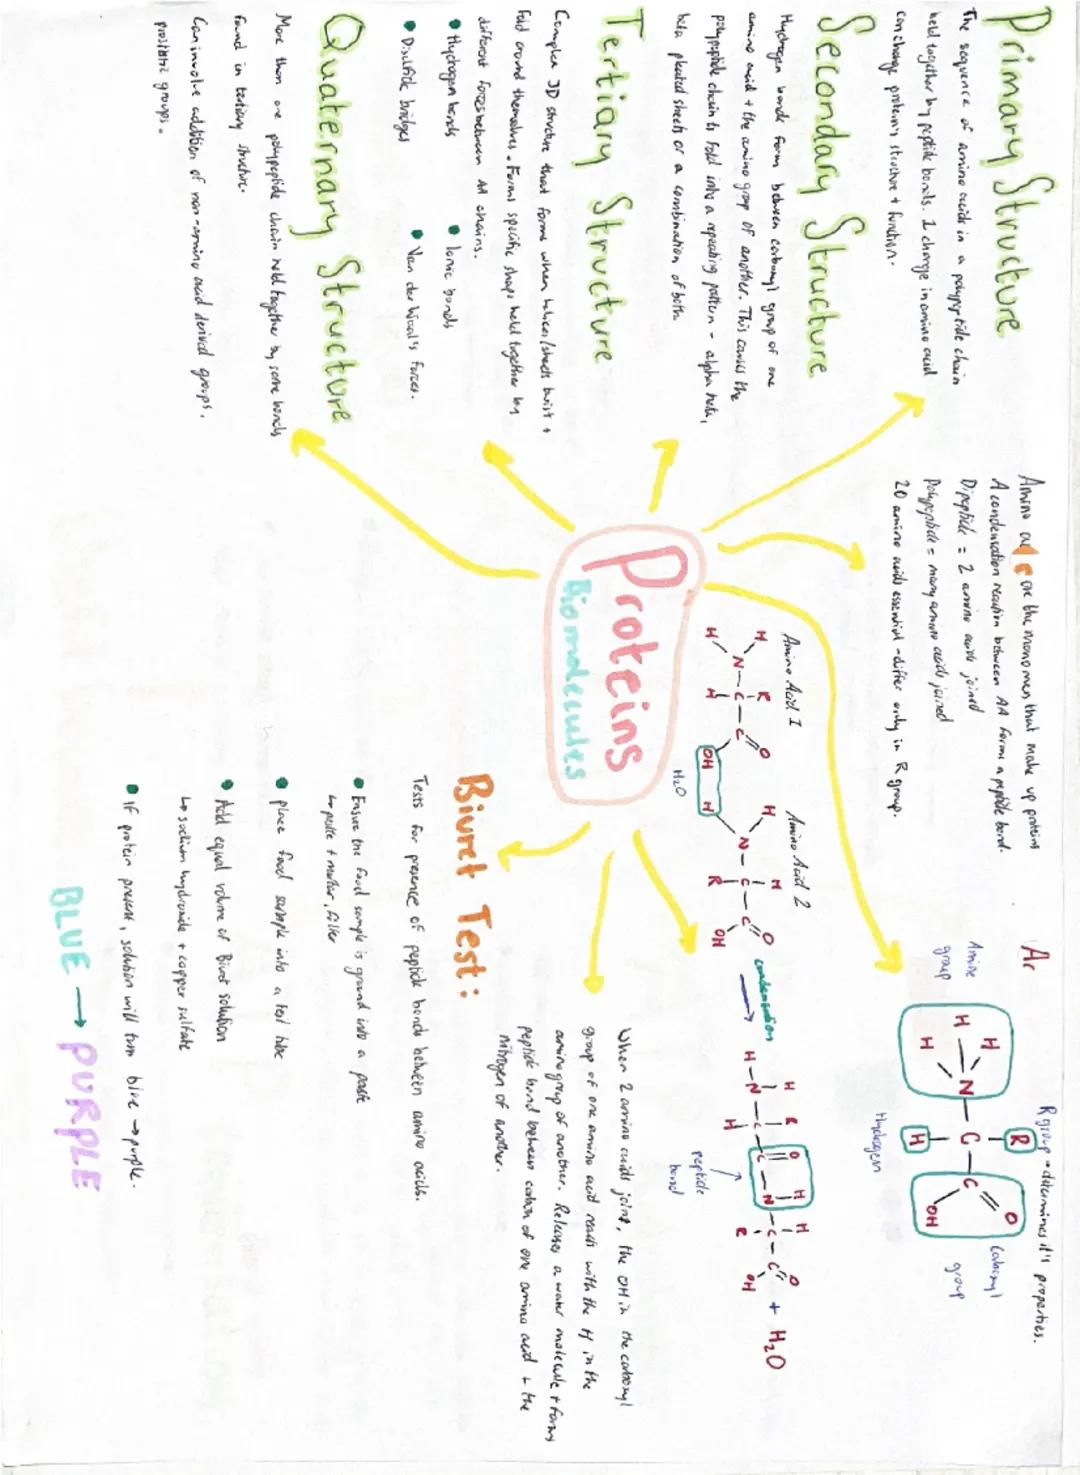 Primary Structure
The sequence of amino acids in a polypeptide chain
held together by peptide bonds. 1 change in amino acid
can change protein's structure + function.
Secondary Structure
Hydrogen bonds form between carboxyl group of one
amino acid + the amino group of another. This causes the
polypeptide chain to fold into a repeating pattern - alpha helix,
beta pleated sheets or a combination of both
Tertiary Structure
Complex 3D structure that forms when helices/sheets twist +
fold around themselves. Forms specific shape held together by
different forces between AA chains.
Hydrogen bonds
Ionic bonds
Disulfide bridges
Van der Waal's forces.
Quaternary Structure
More than one polypeptide chain held together by same bonds
found in tertiary structure.
Can involve addition of non-amino acid derived groups.
prosthetic groups.
Amino are the monomers that make up proteins
A condensation reaction between AA forms a peptide bond.
Dipeptide = 2 amino acids joined
Polypeptide = many amino acids joined
20 amino acids essential - differ only in R group.
Proteins
Biomolecules
Ar
R group - determines it's properties.
Amine
group
H
H
N
C
R
H
C
O
OH
Carboxyl
group
Hydrogen
Amino Acid 1
Amino Acid 2
H
H
N
R
C
H
C
O
OH
H
H
N
H
C
R
C
O
OH
H₂O
condensation
H
H
N
R
C
H
C
O
H
N
H
C
R
C
O
OH
+ H₂O
peptide
bond
When 2 amino acids joins, the OH in the carboxyl
group of one amino acid reacts with the H in the
amino group of another. Releases a water molecule + forms
peptide bond between carbon of one amino acid + the
nitrogen of another.
Biuret Test:
Tests for presence of peptide bonds between amino acids.
Ensure the food sample is ground into a paste
↳ pestle + mortar, filter
place food sample into a test tube
Add equal volume of Biuret solution
↳ sodium hydroxide + copper sulfate
If protein present, solution will turn blue → purple.
BLUE → PURPLE